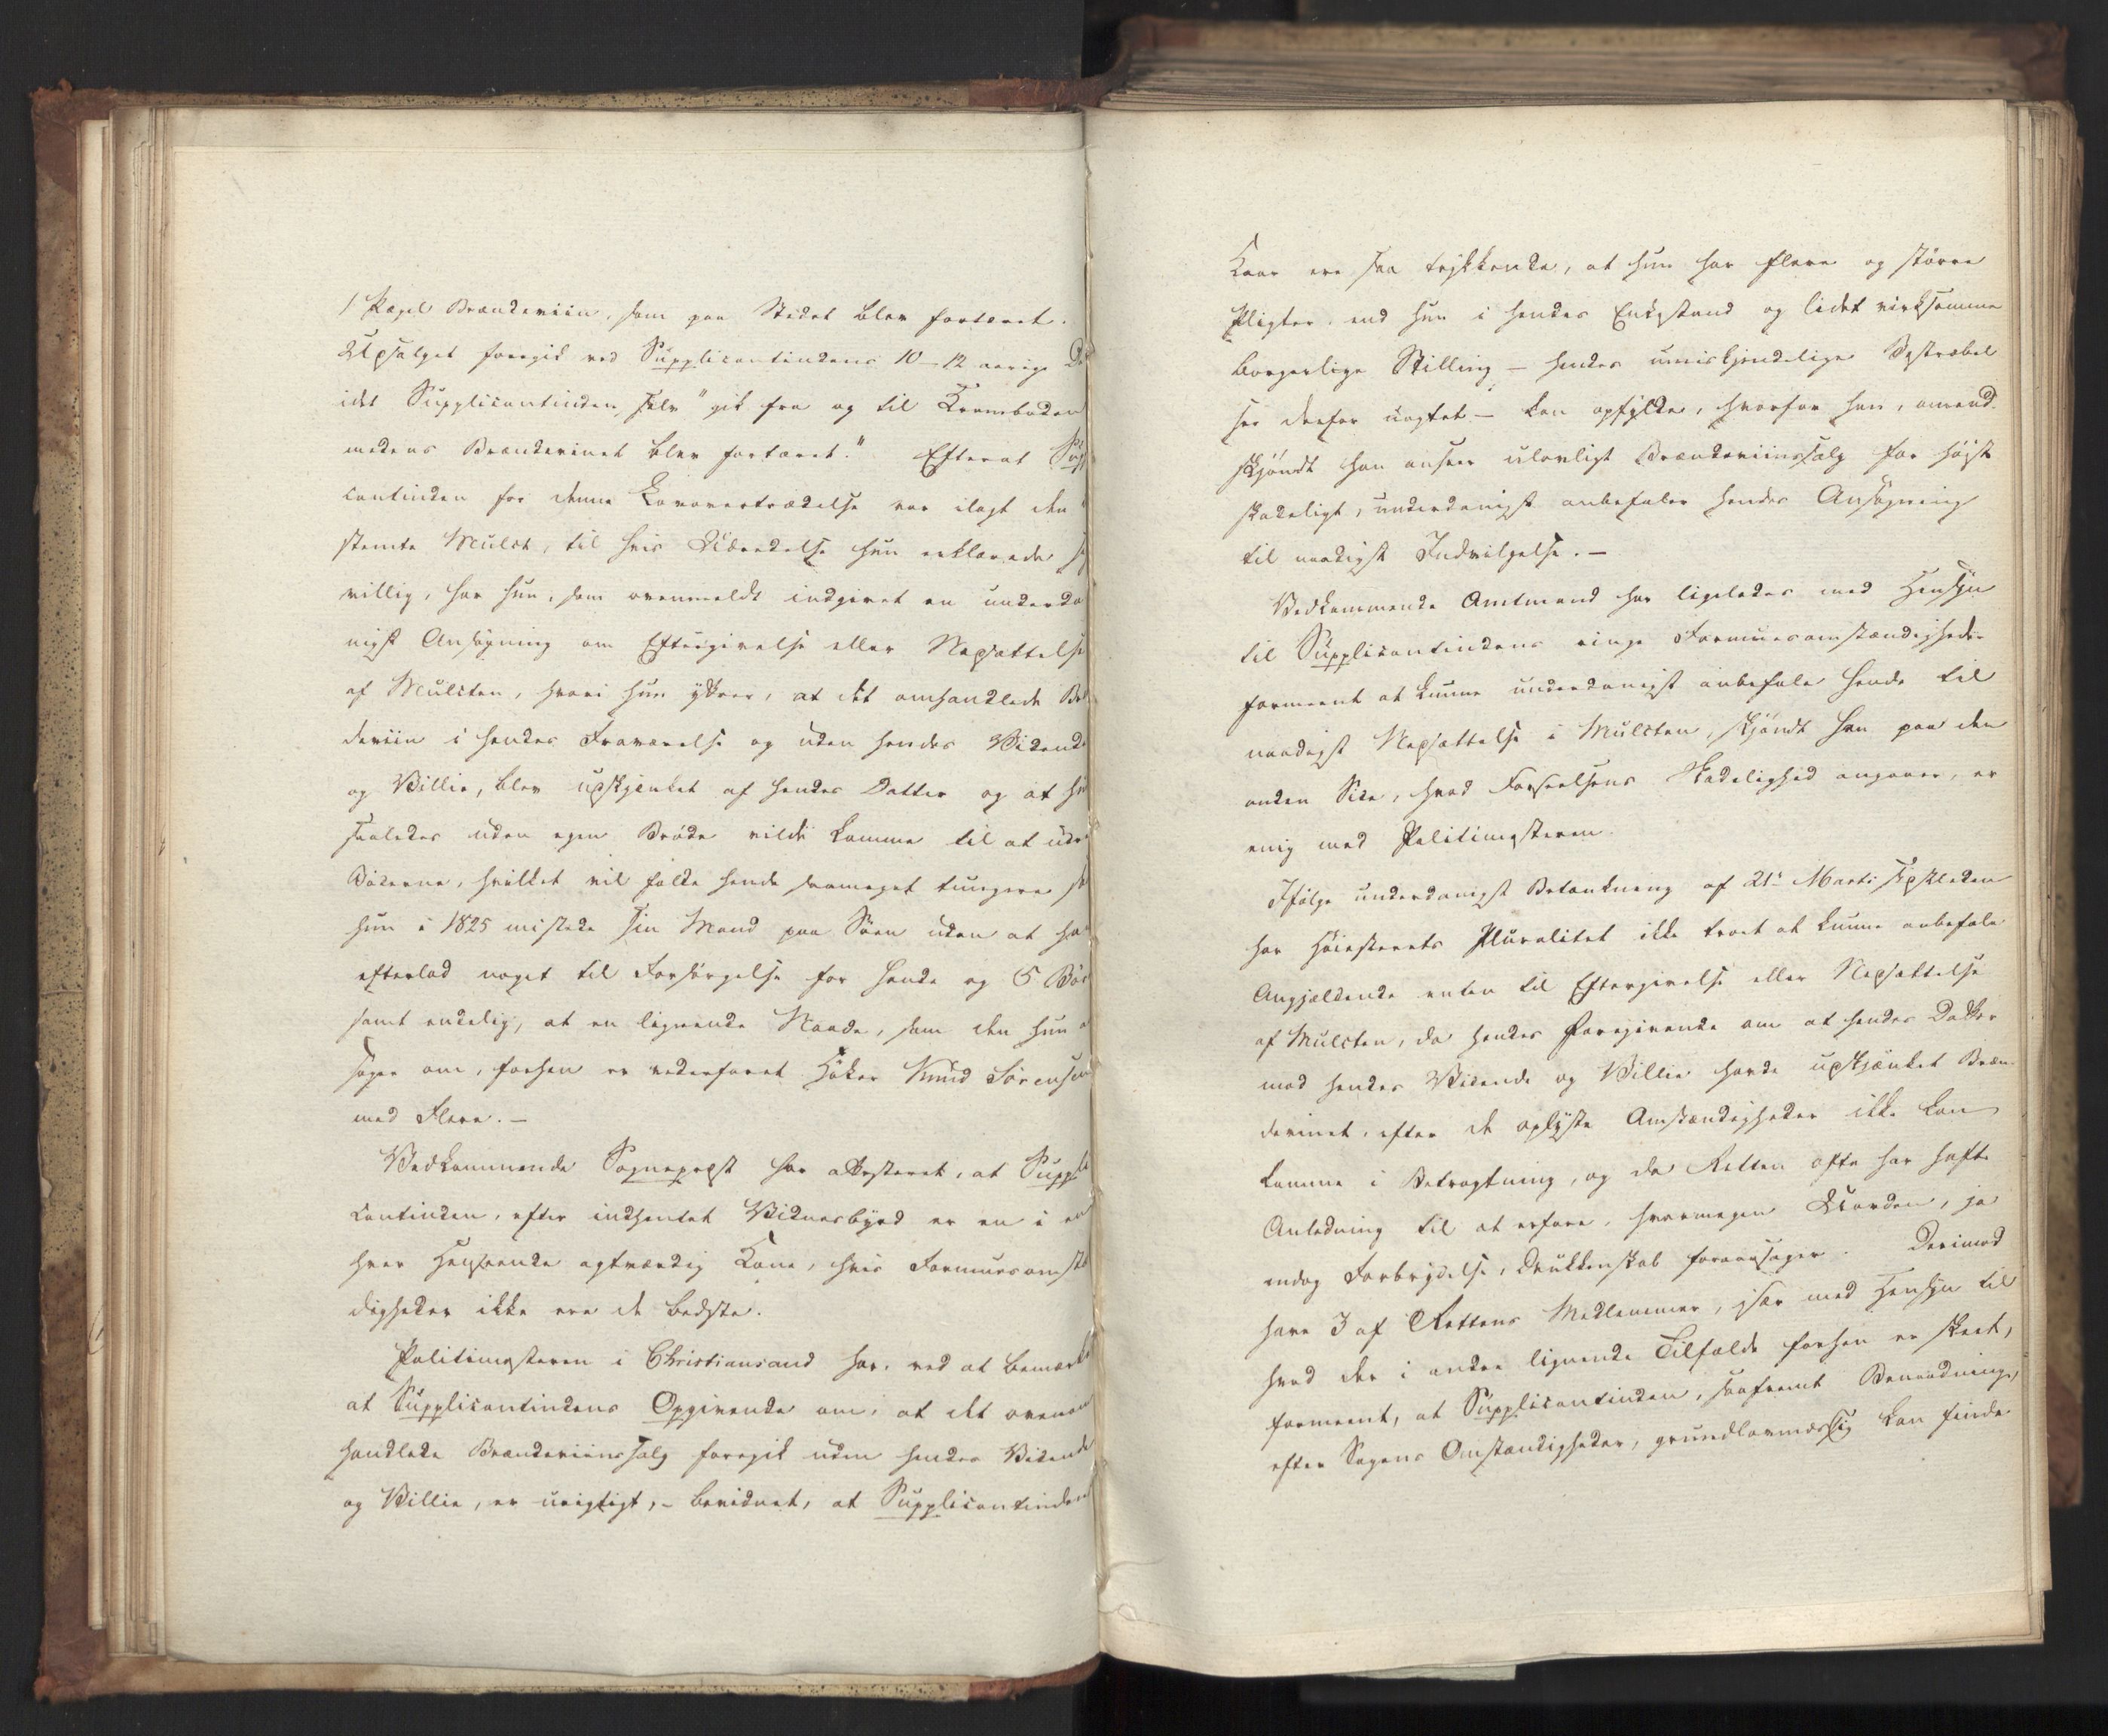 1 Pægel Brændeviin, som paa Stedet blev fortæret.
Udsalget foregik ved Supplicantindens 10-12 aarige D
idet Supplicantinden selv "gik fra og til Kramboden
medens Brændevinet blev fortæret." Efterat Supp
cantinden for denne Lovovertrædelse var ilagt den
stemte Mulct, til hvis Udredelse hun erklærede s
villig, har hun, som ovenmeldt indgivet en underda
nigst Ansøgning om Eftergivelse eller Nedsættelse
af Mulcten, hvori hun ytrer, at det omhandlede Bræ
deviin i hendes Fraværelse og uden hendes Vidende
og Villie, blev udskjenket af hendes Datter og at hu
saaledes uden egen Brøde vilde komme til at udr
Bøderne, hvilket vil falde hende saameget tungere s
hun i 1825 mistede sin Mand paa Søen uden at ha
efterlod noget til Forsørgelse for hende og 5 Bør
samt endelig, at en lignende Naade, som den hun a
søger om, forhen er vederfaret Høker Knud Sørensen
med Flere. -
Vedkommende Sogneprest har attesteret, at Suppli
cantinden, efter indhentet Vidnesbyrd er en i en
hver Henseende agtværdig Kone, hvis Formuesomstæ
digheder ikke ere de bedste.
Politimesteren i Christiansand har, ved at bemærke
at Supplicantindens Opgivende om, at det ovenom
handlede Brændeviinssalg foregik uden hendes Vidende
og Villie, er urigtigt, - bevidnet, at Supplicantinden
Kaar ere saa trykkende, at hun har flere og større
Pligter, end hun i hendes Enkestand og lidet virksomme
borgerlige Stilling - hendes umiskjendelige Bestræbel
ser derfor uagtet - kan opfylde, hvorfor han, omend
skjøndt han anseer ulovligt Brændeviinssalg for højst
skadeligt, underdanigst anbefaler hendes Ansøgning
til naadigst Indvilgelse. -
Vedkommende Amtmand har ligeledes med Hensyn
til Supplicantindens ringe Formuesomstændigheder
formeent at kunne underdanigst anbefale hende til
naadigst Nedsættelse i Mulcten, skjøndt han paa den
anden Side, hvad Forseelsens Skadelighed angaaer, er
enig med Politimesteren.
Ifølge underdanigst Betænkning af 21de Marts sidstleden
har Høiesterets Pluralitet ikke troet at kunne anbefale
Angjældende enten til Eftergivelse eller Nedsættelse
af Mulcten, da hendes Foregivende om at hendes Datter
mod hendes Vidende og Villie havde udskjænket Bræn
devinet, efter de oplyste Omstændigheder ikke kan
komme i Betragtning, og da Retten ofte har hafte
Anledning til at erfare, hvormegen Uorden, ja
endog Forbrydelse, Drukkenskab foraarsager. Derimod
have 3 af Rettens Medlemmer, især med Hensyn til
hvad der i andre lignende Tilfælde forhen er skeet,
formeent, at Supplicantinden, saafremt Benaadning,
efter Sagens Omstændigheder, grundlovmæssig kan finde